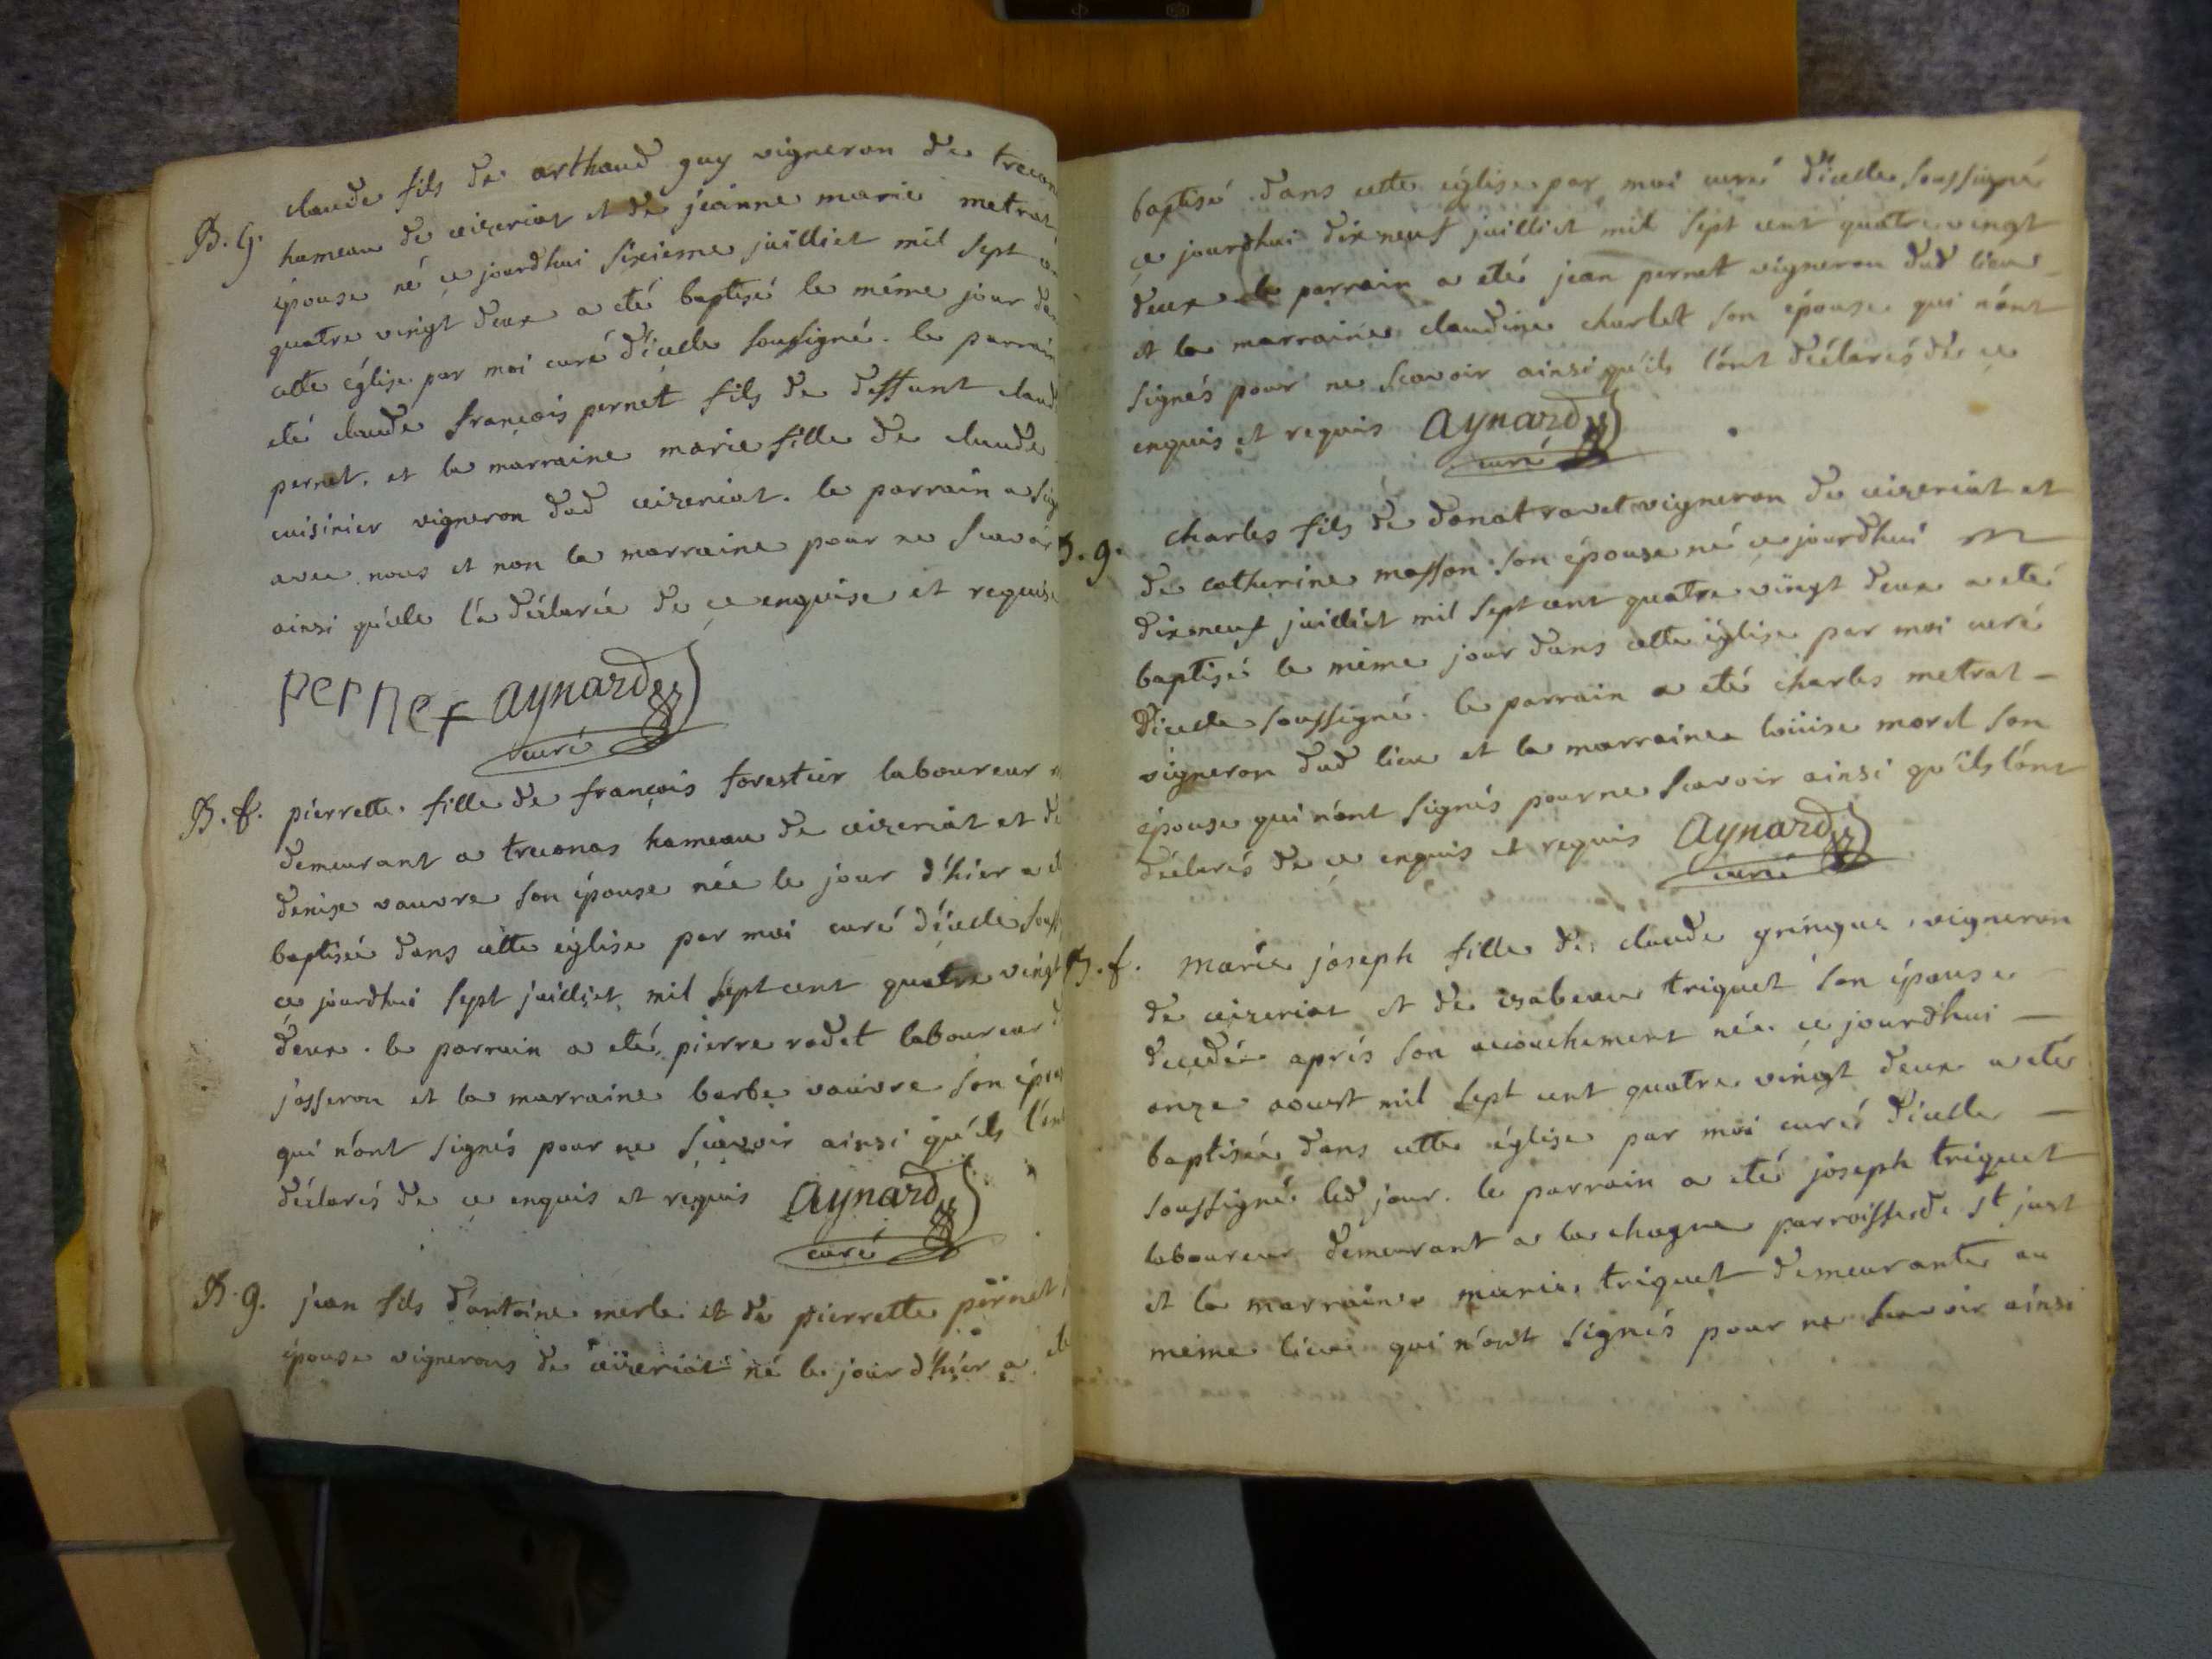 B. g. claude fils de arthaud guy vigneron de
hameau de ceizeriat et de jeanne marie metrat
épouse né ce jourdhui sixieme juilliet mil sept
quatre vingt deux a eté baptisé le méme jour
cette église par moi curé d'icelle soussigné. le parrain
eté claude françois pernet fils de deffunt
pernet. et la marraine marie fille de claude
cuisinier vigneron dud ceizeriat. le parrain a
avec nous et non la marraine pour ne scavoir
ainsi qu'elle l'a déclarée de ce enquise et requise
Pernet aynard
curé
B. f. pierrette fille de françois forestier laboureur
demeurant a treconas hameau de ceizeriat et de
denise vauvre son épouse née le jour d'hier a
baptisée dans cette église par moi curé d'icelle
ce jourdhui sept juilliet mil sept cent quatre vingt
deux. le parrain a eté pierre rodet laboureur
jasseron et la marraine barbe vauvre son
qui n'ont signés pour ne scavoir ainsi qu'ils
déclarés de ce enquis et requis aynard
curé
B. g. jean fils d'antoine merle et de pierrette pernet
épouse vignerons de ceizeriat né le jour d'hier a
baptisé dans cette église par moi curé d'icelle soussigné
ce jourdhui dix neuf juilliet mil sept cent quatre vingt
deux le parrain a eté jean pernet vigneron dud lieu
et la marraine claudine charlet son épouse qui n'ont
signés pour ne scavoir ainsi qu'ils l'ont déclarés de ce
enquis et requis aynard
curé
B. g. charles fils de donat ravet vigneron de ceizeriat et
de catherine masson son épouse né ce jourdhui
dix neuf juilliet mil sept cent quatre vingt deux a eté
baptisé le méme jour dans cette église par moi curé
d'icelle soussigné. le parrain a eté charles metrat
vigneron dud lieu et la marraine loüise morel son
épouse qui n'ont signés pour ne scavoir ainsi qu'ils l'ont
déclarés de ce enquis et requis aynard
curé
B. f. marie joseph fille de claude gringuz vigneron
de ceizeriat et de izabeau triquet son épouse
decedée aprés son acouchement née ce jourdhui
onze aoust mil sept cent quatre vingt deux a eté
baptisée dans cette église par moi curé d'icelle
soussigné led jour. le parrain a eté joseph triquet
laboureur demeurant a la chagne parroisse de st just
et la marraine marie triquet demeurante au
méme lieu qui n'ont signés pour ne scavoir ainsi